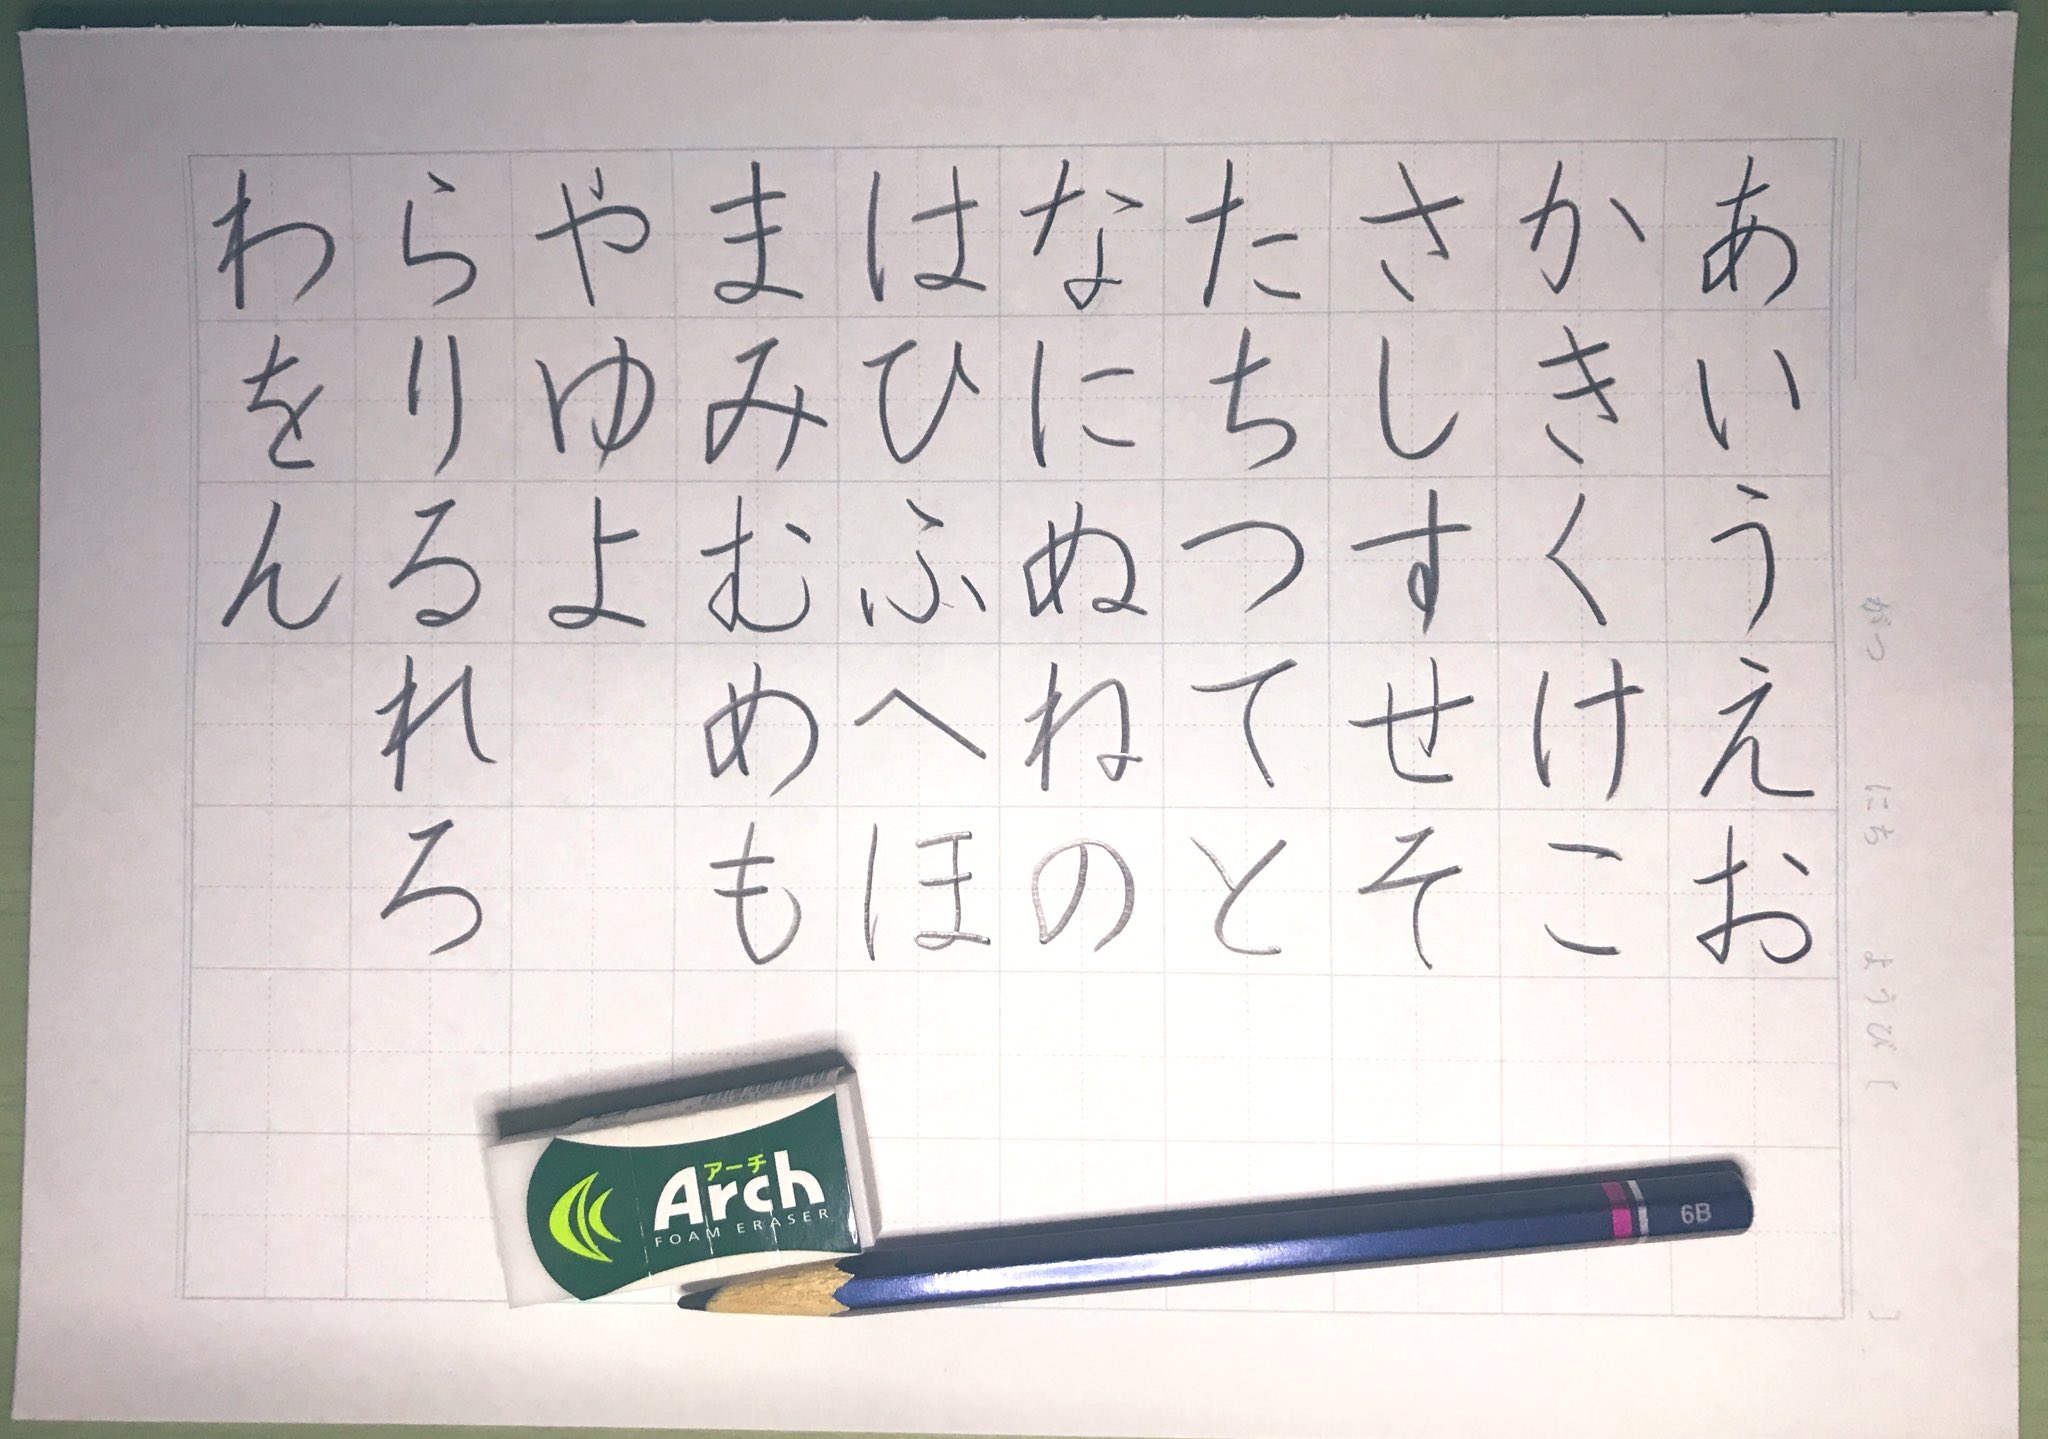 あいうえお
かきくけこ
さしすせそ
たちつてと
なにぬねの
はひふへほ
まみむめも
やゆよ
らりるれろ
わをん
アーチ
Arch
FOAM ERASER
6B